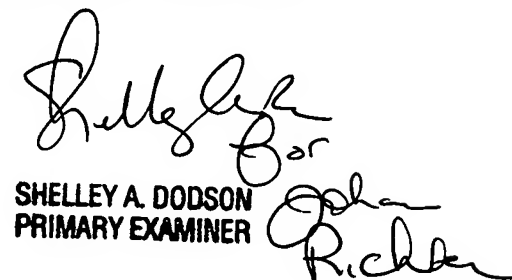 for
SHELLEY A. DODSON
PRIMARY EXAMINER
Johann
Richter